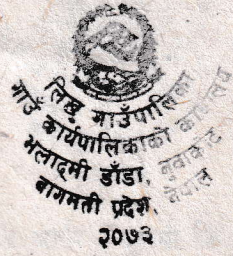 लिखु गाउँपालिका
गाउँ कार्यपालिकाको कार्यालय
भलाद्मी डाँडा, नुवाकोट
बागमती प्रदेश, नेपाल
२०७३